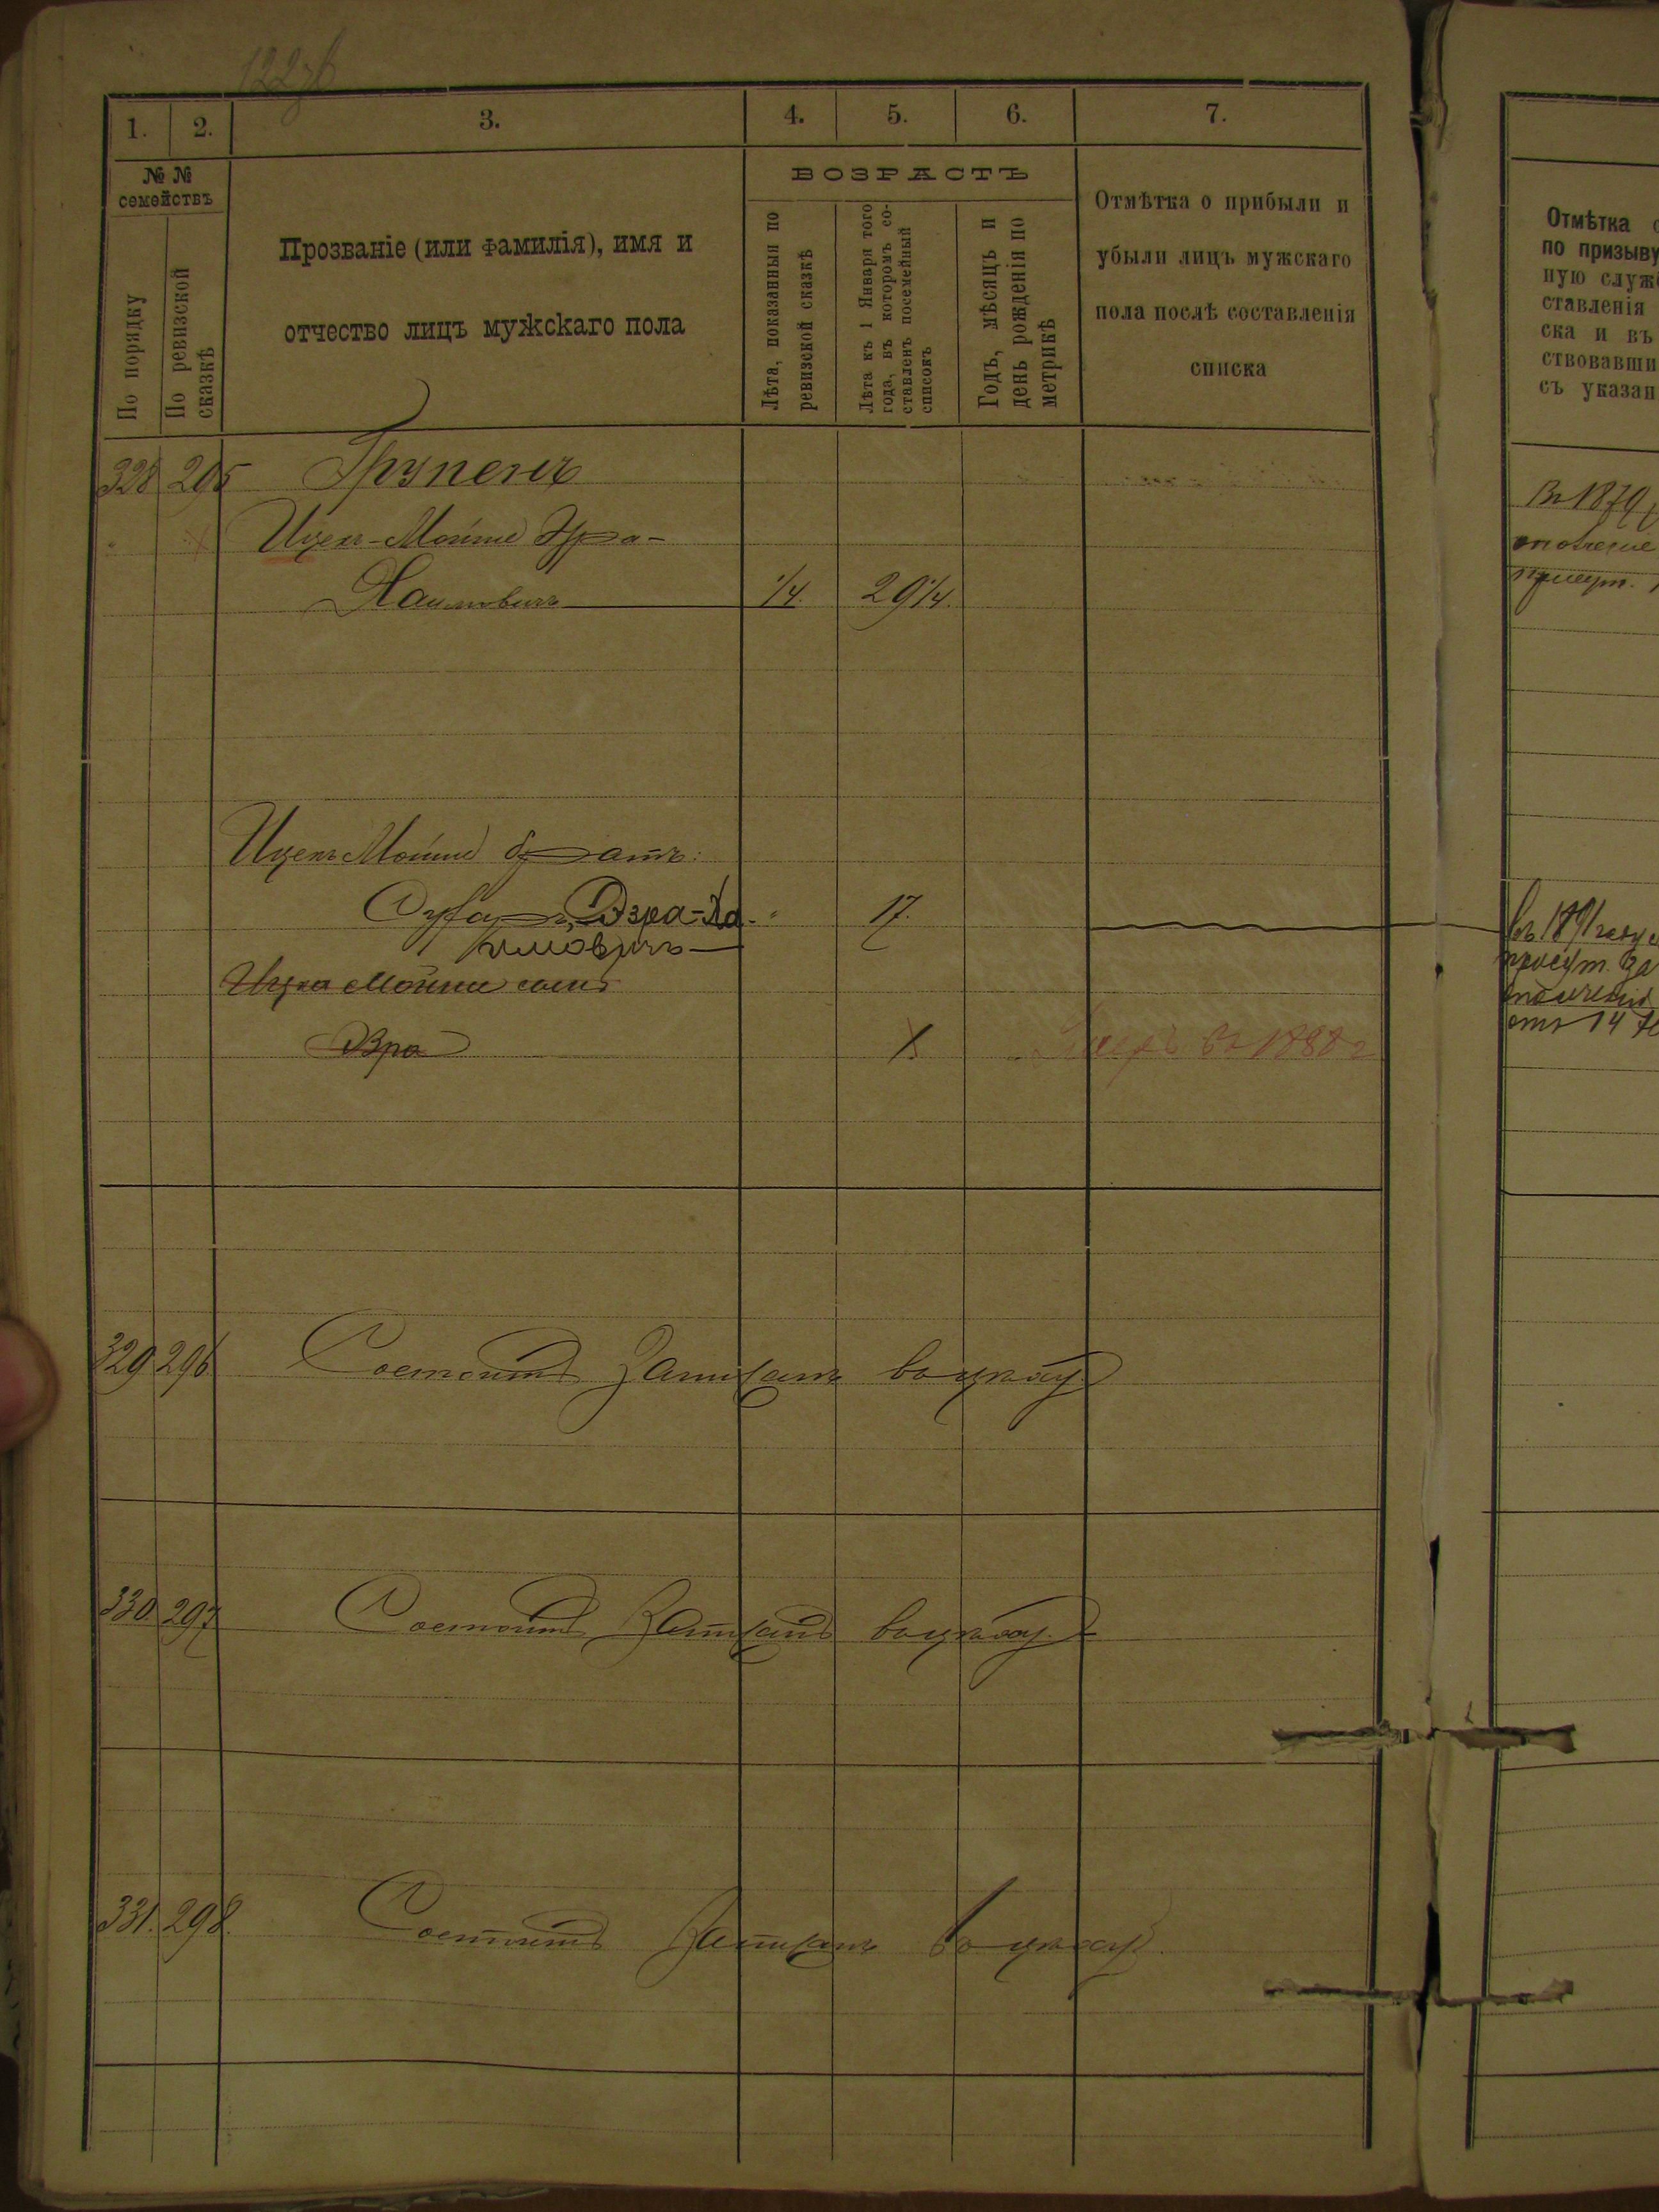 1. 2. 3. 4. 5. 6. 7.
№ № семействъ
По порядку
По ревизской сказкѣ
Прозваніе (или фамилія), имя и
отчество лицъ мужскаго пола
ВОЗРАСТЪ
Лѣта, показанныя по
ревизской сказкѣ
Лѣта къ 1 Января того
года, въ которомъ со-
ставленъ посемейный
списокъ
Годъ, мѣсяцъ и
день рожденія по
метрикѣ
Отмѣтка о прибыли и
убыли лицъ мужскаго
пола послѣ составленія
списка
328 295 Групенъ
Ицекъ-Мойше Эзра-
Хаимовичъ 1/4. 29 1/4.
Ицекъ Мойше братъ:
Эзра-Ха 17.
имовичъ
Ицка Мойши сынъ
Эзра
329 296 Состоитъ Записанъ
330. 297 Состоитъ Записанъ
331. 298. Состоитъ Записанъ
Отмѣтка
по призыву
ную служ
ставленія
ска и въ
ствовавши
съ указан
Въ 1879
ополчение
присут.
Въ 1891 году
присут. За
ополчения
отъ 14